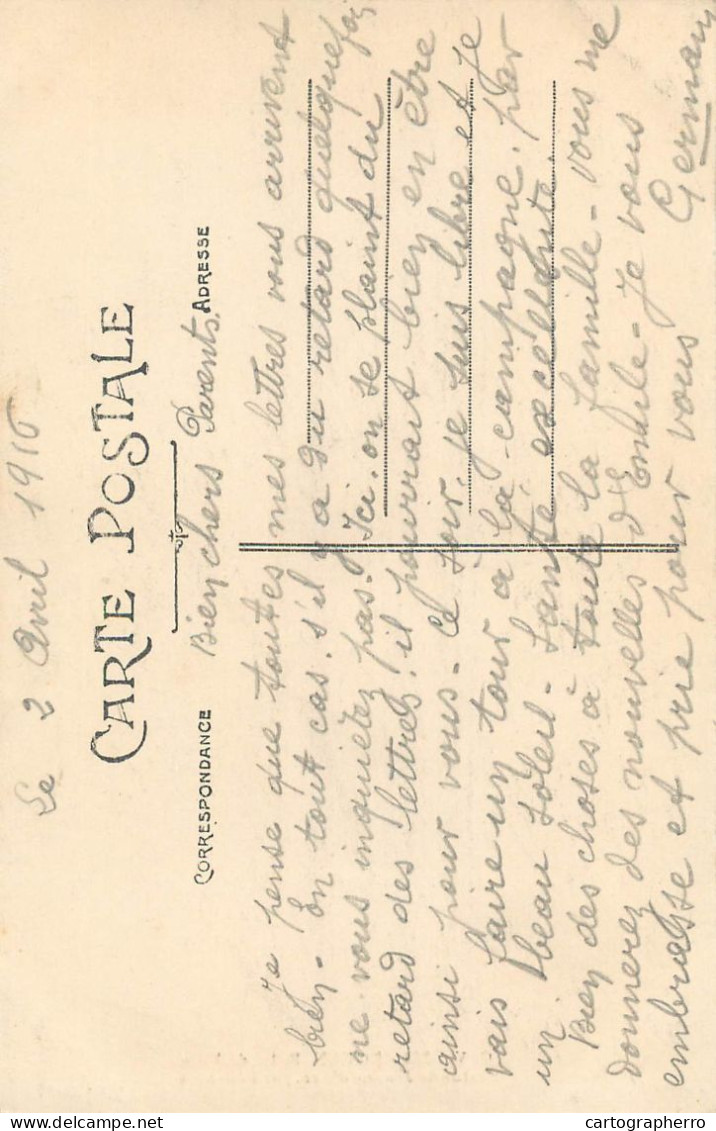 Le 2 Avril 1916
CARTE POSTALE
CORRESPONDANCE
ADRESSE
Bien chers Parents,
Je pense que toutes mes lettres vous arrivent
bien - En tout cas, s'il y a du retard quelquefois
ne vous inquiétez pas. Ici, on se plaint du
retard des lettres, il pourrait bien en être
ainsi pour vous - Ce soir, je suis libre et je
vais faire un tour à la campagne, par
un beau soleil - Santé excellente.
Bien des choses à toute la famille - vous me
donnerez des nouvelles d'Emile - Je vous
embrasse et prie pour vous
Germain
delcampe.net
cartographerro